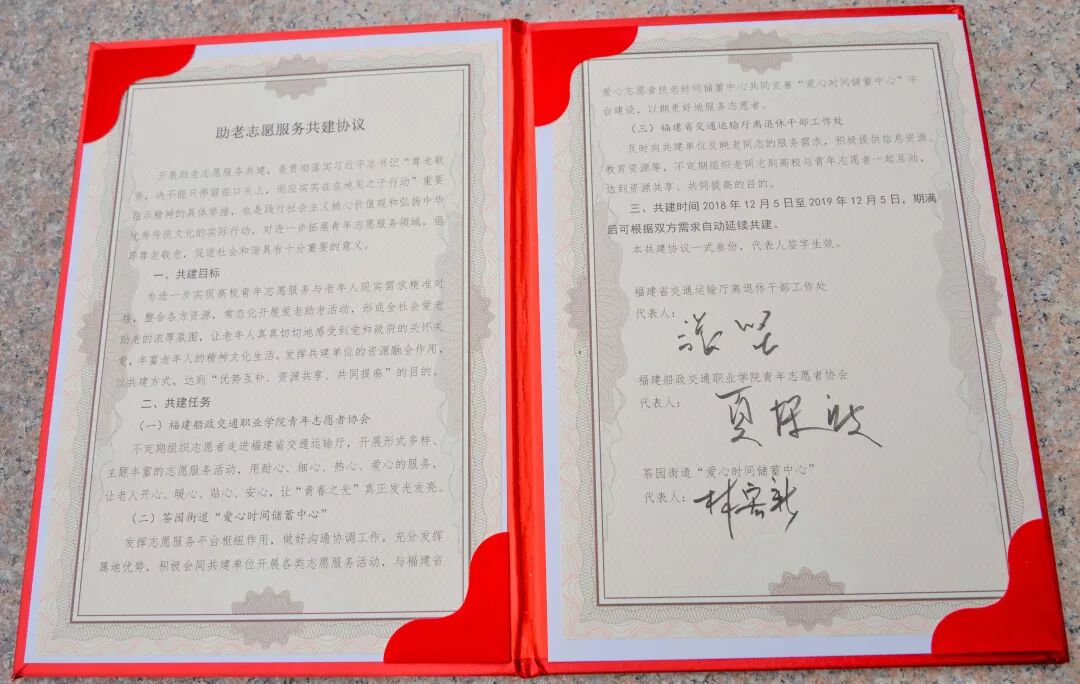 助老志愿服务共建协议
开展助老志愿服务共建，是贯彻落实习近平总书记“尊老敬
贤，决不能只停留在口头上，而应实实在在地见之于行动”重要
指示精神的具体举措，也是践行社会主义核心价值观和弘扬中华
优秀传统文化的实际行动，对进一步拓展青年志愿服务领域，倡
导尊老敬老，促进社会和谐具有十分重要的意义。
一、共建目标
为进一步实现高校青年志愿服务与老年人现实需求精准对
接，整合各方资源，常态化开展爱老助老活动，形成全社会爱老
助老的浓厚氛围，让老年人真真切切地感受到党和政府的关怀关
爱，丰富老年人的精神文化生活。发挥共建单位的资源融合作用，
以共建方式，达到“优势互补、资源共享、共同提高”的目的。
二、共建任务
（一）福建船政交通职业学院青年志愿者协会
不定期组织志愿者走进福建省交通运输厅，开展形式多样、
主题丰富的志愿服务活动，用耐心、细心、热心、爱心的服务，
让老人开心、暖心、贴心、安心，让“青春之光”真正发光发亮。
（二）茶园街道“爱心时间储蓄中心”
发挥志愿服务平台枢纽作用，做好沟通协调工作，充分发挥
属地优势，积极会同共建单位开展各类志愿服务活动，与福建省
爱心志愿者扶老时间储蓄中心共同完善“爱心时间储蓄中心”平
台建设，以期更好地服务志愿者。
（三）福建省交通运输厅离退休干部工作处
及时向共建单位反映老同志的服务需求，积极提供信息资源、
教育资源等，不定期组织老同志到高校与青年志愿者一起互动，
达到资源共享、共同提高的目的。
三、共建时间 2018 年 12 月 5 日至 2019 年 12 月 5 日，期满
后可根据双方需求自动延续共建。
本共建协议一式叁份，代表人签字生效。
福建省交通运输厅离退休干部工作处
代表人：
福建船政交通职业学院青年志愿者协会
代表人：夏
茶园街道“爱心时间储蓄中心”
代表人：林